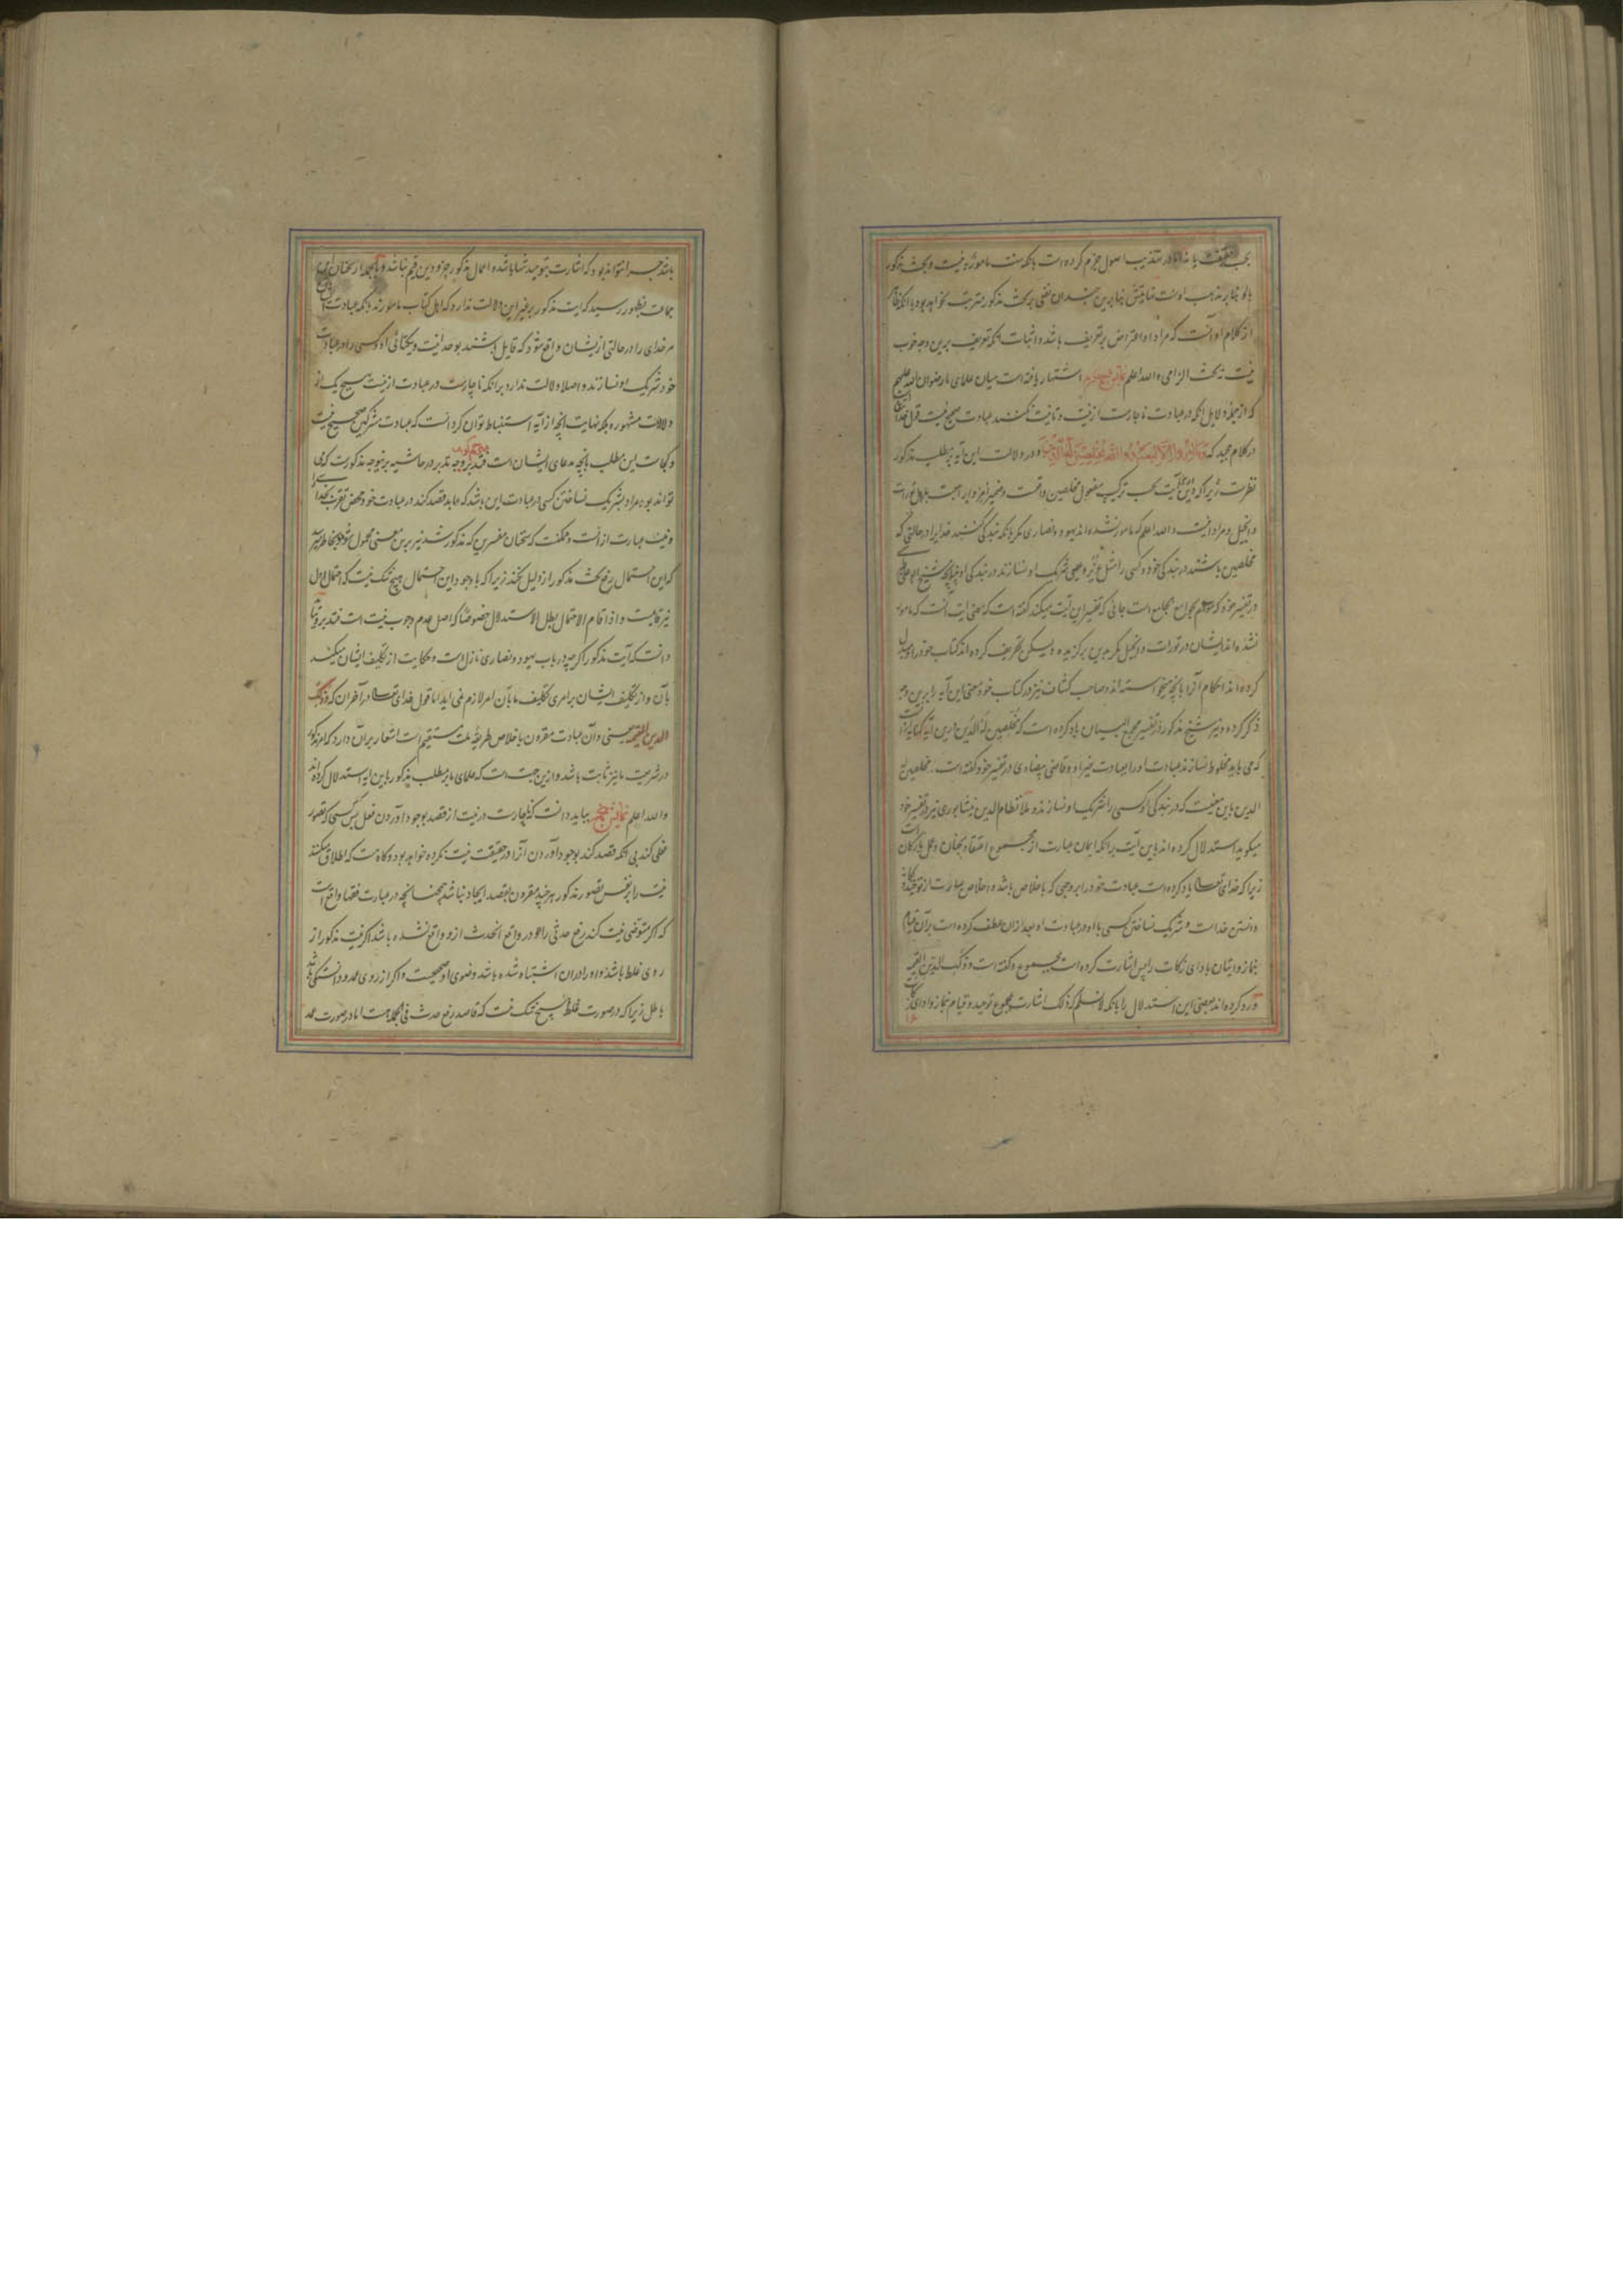 بحسب حقیقت یا نه اما در تهذیب اصول جزم کرده است بانکه سنت مامور به نیست و بحث مذکور
با او بنا بر مذهب اوست نهایتش بنابرین چندان نفعی بر بحث مذکور مترتب نخواهد بود با انکه ظاهر
از کلام او آنست که مراد او اعتراض بر تعریف باشد و اثبات انکه تعریف برین وجه خوب
نیست نه بحث الزامی والله اعلم اشتهار یافته است میان علمای ما رضوان الله علیهم
که از جمله دلایل انکه در عبادت ناچارست از نیت و تا نیت نکنند عبادت صحیح نیست قول خدای تعالی است
در کلام مجید که وما امروا الا لیعبدوا الله مخلصین له الدین و در دلالت این آیه بر مطلب مذکور
نظرست زیرا که درین آیت بحسب ترکیب مفعول مخلصین واقعست و ضمیر امروا راجعست باهل تورات
و انجیل و مراد اینست والله اعلم که مامور نشده اند یهود و نصاری مگر بانکه بندگی کنند خدایرا در حالتی که
مخلصین باشند در بندگی خود و کسی را مثل عزیر و عیسی شریک او نسازند در بندگی او چنانچه شیخ ابو علی
در تفسیر خود که موسوم بجوامع الجامع است جائی که تفسیر این آیت میکند گفته است که معنی ایت انست که مامور
نشده اند ایشان در تورات و انجیل مگر بدین برگزیده ولیکن تحریف کرده اند کتاب خود را و تبدیل
کرده اند احکام آنرا بانچه میخواسته اند و صاحب کشاف نیز در کتاب خود معنی این آیه را برین وجه
ذکر کرده و نیز شیخ مذکور در تفسیر مجمع البیان یاد کرده است که مخلصین له الدین درین آیه کنایه از آنست
که می باید مخلوط نسازند عبادت او را بعبادت غیر او و قاضی بیضاوی در تفسیر خود گفته است مخلصین له
الدین باین معنیست که در بندگی او کسی را شریک او نسازند و ملا نظام الدین نیشابوری نیز در تفسیر خود
میگوید استدلال کرده اند باین آیت بر انکه ایمان عبارت از مجموع اعتقاد بجنان و عمل بارکان است
زیرا که خدای تعالی یاد کرده است عبادت خود را بر وجهی که باخلاص باشد و اخلاص عبارت از توحید
و دانستن خداست و شریک نساختن کسی با او در عبادت او بعد ازان عطف کرده است بر آن قیام
بنماز و اتیان بادای زکات را پس اشارت کرده است بمجموع و گفته است وذلک الدین القیمة
و رد کرده اند بعضی این استدلال را بانکه لا نسلم که ذلک اشارت بمجموع توحید و قیام بنماز و ادای زکات
باشد چرا نتواند بود که اشارت بتوحید تنها باشد و اعمال مذکور جزو دین قیم نباشد و بالجمله از سخنان این
جماعت بظهور رسید که ایت مذکور بر غیر این دلالت ندارد که اهل کتاب مامورند بانکه عبادت
مر خدای را در حالتی ازیشان واقع شود که قایل باشند بوحدانیت و یکتائی او و کسی را در عبادت
خود شریک او نسازند و اصلا دلالت ندارد بر انکه ناچارست در عبادت از نیت بهیچ یک از
دلالات مشهوره بلکه نهایت انچه از آیه استنباط توان کرد انست که عبادت مشرکین صحیح نیست
و کجاست این مطلب بانچه مدعای ایشان است فتدبر وجه تدبر در حاشیه برینوجه مذکورست که می
تواند بود مراد بشریک نساختن کسی در عبادت این باشد که عابد قصد کند در عبادت خود محض تقرب بخدا را
و نیت عبارت از انست و ممکنست که سخنان مفسرین که مذکور شد نیز برین معنی محمول شود و بخاطر میرسد
که این احتمال رفع بحث مذکور از دلیل نکند زیرا که با وجود این احتمال هیچ شک نیست که احتمال اول
نیز قایمست و اذا قام الاحتمال بطل الاستدلال خصوصا که اصل عدم وجوب نیت است فتدبر
دانست که آیت مذکور اگر چه در باب یهود و نصاری نازل است و حکایت از تکلیف ایشان میکند
بآن و از تکلیف ایشان بر امری تکلیف ما بآن امر لازم نمی اید اما قول خدای تعالی در آخر ان که وذلک
الدین القیمة یعنی و آن عبادت مقرون باخلاص طریقه ملت مستقیم است اشعار بران دارد که امر مذکور
در شریعت ما نیز ثابت باشد و ازین جهت است که علمای ما بر مطلب مذکور باین ایه استدلال کرده اند
والله اعلم بباید دانست که ناچارست در نیت از قصد بوجود آوردن فعل پس کسی که تصور
فعلی کند بی انکه قصد کند بوجود آوردن آنرا در حقیقت نیت نکرده خواهد بود و گاه هست که اطلاق میکنند
نیت را بر نفس تصور مذکور هر چند مقرون بقصد ایجاد نباشد همچنانچه در عبارت فقها واقع است
که اگر متوضی نیت کند رفع حدثی را و در واقع انحدث ازو واقع نشده باشد اگر نیت مذکور از
روی غلط باشد و او را دران اشتباه شده باشد وضوی او صحیحست و اگر از روی عمد و دانستگی باشد
باطل زیرا که در صورت غلط هیچ شک نیست که قاصد رفع حدث فی الجمله هست اما در صورت عمد